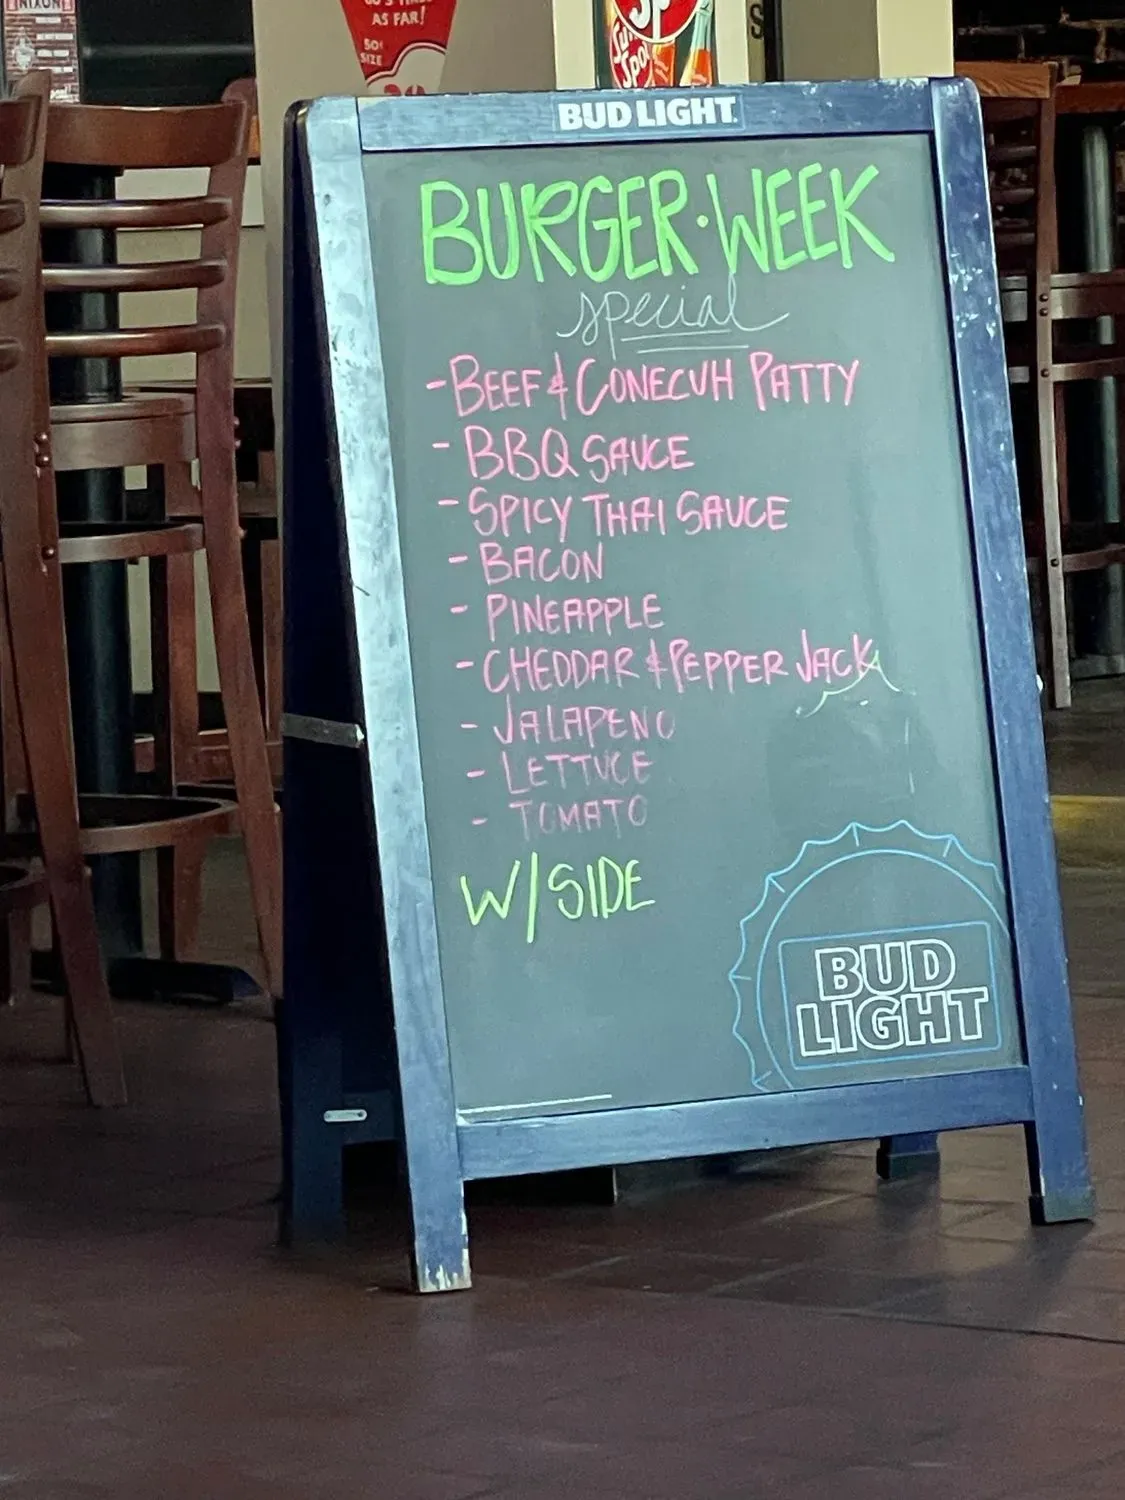 NIXON
AS FAR!
50¢
SIZE
Sun
Spot
BUD LIGHT
BURGER·WEEK
special
-BEEF & CONECUH PATTY
- BBQ SAUCE
- SPICY THAI SAUCE
- BACON
- PINEAPPLE
- CHEDDAR & PEPPER JACK
- JALAPENO
- LETTUCE
- TOMATO
W/SIDE
BUD
LIGHT